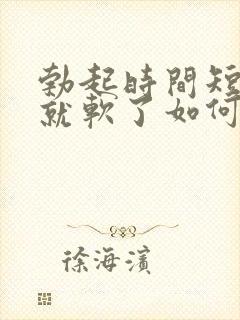 勃起時間短
就軟了如何
徐海濱